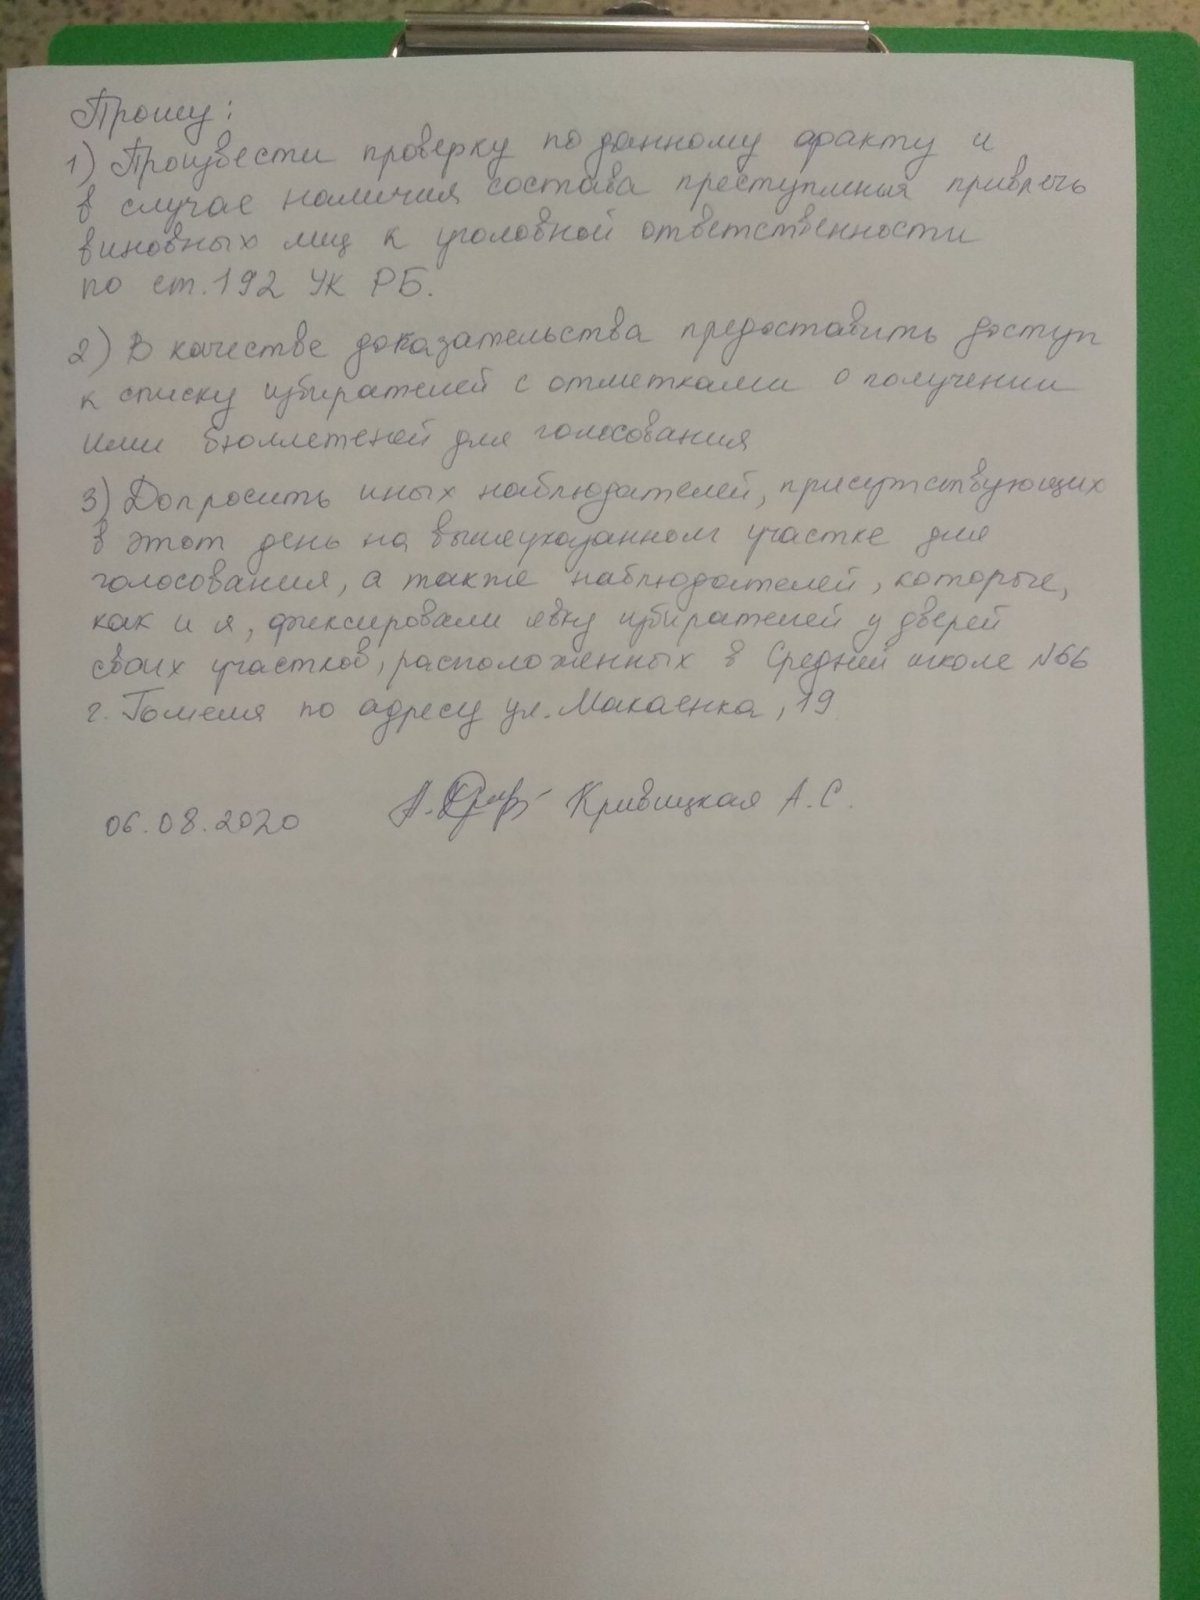 Прошу:
1) Произвести проверку по данному факту и
в случае наличия состава преступления привлечь
виновных лиц к уголовной ответственности
по ст. 192 УК РБ.
2) В качестве доказательства предоставить доступ
к списку избирателей с отметками о получении
ими бюллетеней для голосования
3) Допросить иных наблюдателей, присутствующих
в этот день на вышеуказанном участке для
голосования, а также наблюдателей, которые,
как и я, фиксировали явку избирателей у дверей
своих участков, расположенных в Средней школе №66
г. Гомеля по адресу ул. Макаенка, 19
06.08.2020 Кривицкая А.С.